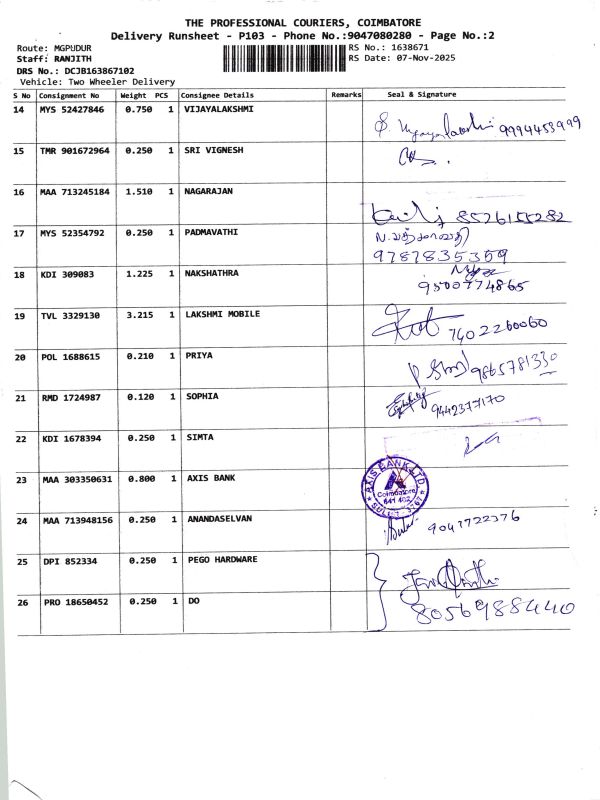 THE PROFESSIONAL COURIERS, COIMBATORE
Delivery Runsheet - P103 - Phone No.:9047080280 - Page No.:2
Route: MGPUDUR
RS No.: 1638671
Staff: RANJITH
RS Date: 07-Nov-2025
DRS No.: DCJB163867102
Vehicle: Two Wheeler Delivery
S No Consignment No Weight PCS Consignee Details Remarks Seal & Signature
14 MYS 52427846 0.750 1 VIJAYALAKSHMI
9994453999
15 TMR 901672964 0.250 1 SRI VIGNESH
16 MAA 713245184 1.510 1 NAGARAJAN
8526155282
17 MYS 52354792 0.250 1 PADMAVATHI
N.பத்மாவதி
9787835359
18 KDI 309083 1.225 1 NAKSHATHRA
9500774865
19 TVL 3329130 3.215 1 LAKSHMI MOBILE
7402260060
20 POL 1688615 0.210 1 PRIYA
9865781330
21 RMD 1724987 0.120 1 SOPHIA
9442377170
22 KDI 1678394 0.250 1 SIMTA
23 MAA 303350631 0.800 1 AXIS BANK
AXIS BANK LTD
Coimbatore
641 402
24 MAA 713948156 0.250 1 ANANDASELVAN
9047722376
25 DPI 852334 0.250 1 PEGO HARDWARE
26 PRO 18650452 0.250 1 DO
8056988440